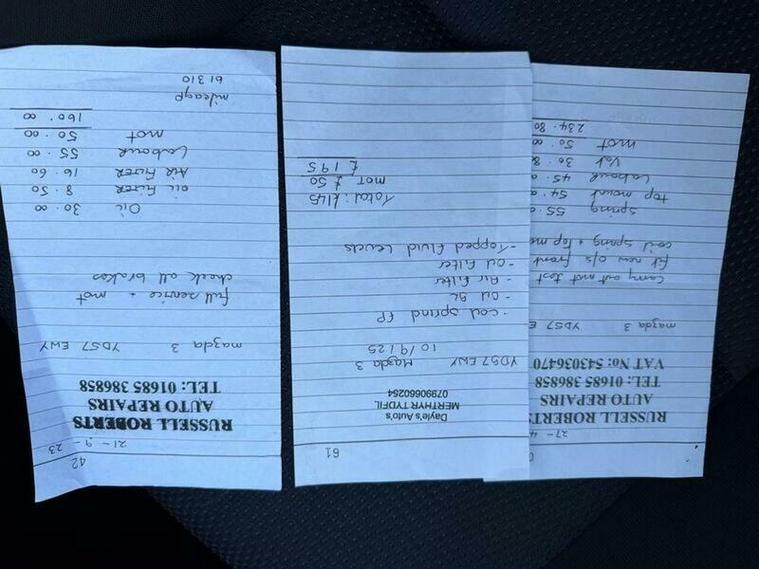 27-4
RUSSELL ROBERTS
AUTO REPAIRS
TEL: 01685 386858
VAT No: 543036470
mazda 3 YD57 E
carry out mot test
fit new o/s front
coil spring + top mo
spring 55.
top mount 54.
Labour 45.
Vat 30.8
mot 50.00
234.80
61
Dayle's Auto's
MERTHYR TYDFIL
07990660254
YD57 EWY Mazda 3
10/9/25
- Coil Sprind FP
- Oil 5L
- Air Filter
- Oil Filter
- Topped Fluid Levels
Total: £145
MOT £50
£195
42
21-9-23
RUSSELL ROBERTS
AUTO REPAIRS
TEL: 01685 386858
mazda 3 YD57 EWY
full service + mot
check all brakes
Oil 30.00
Oil Filter 8.50
Air Filter 16.60
Labour 55.00
mot 50.00
160.00
mileage
61310